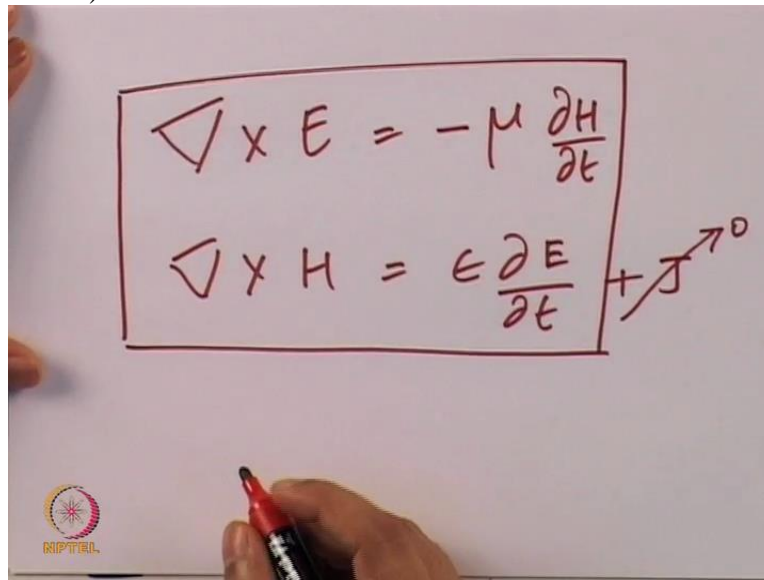 )
∇ × E = - μ ∂H/∂t
∇ × H = ϵ ∂E/∂t + J → 0
NPTEL